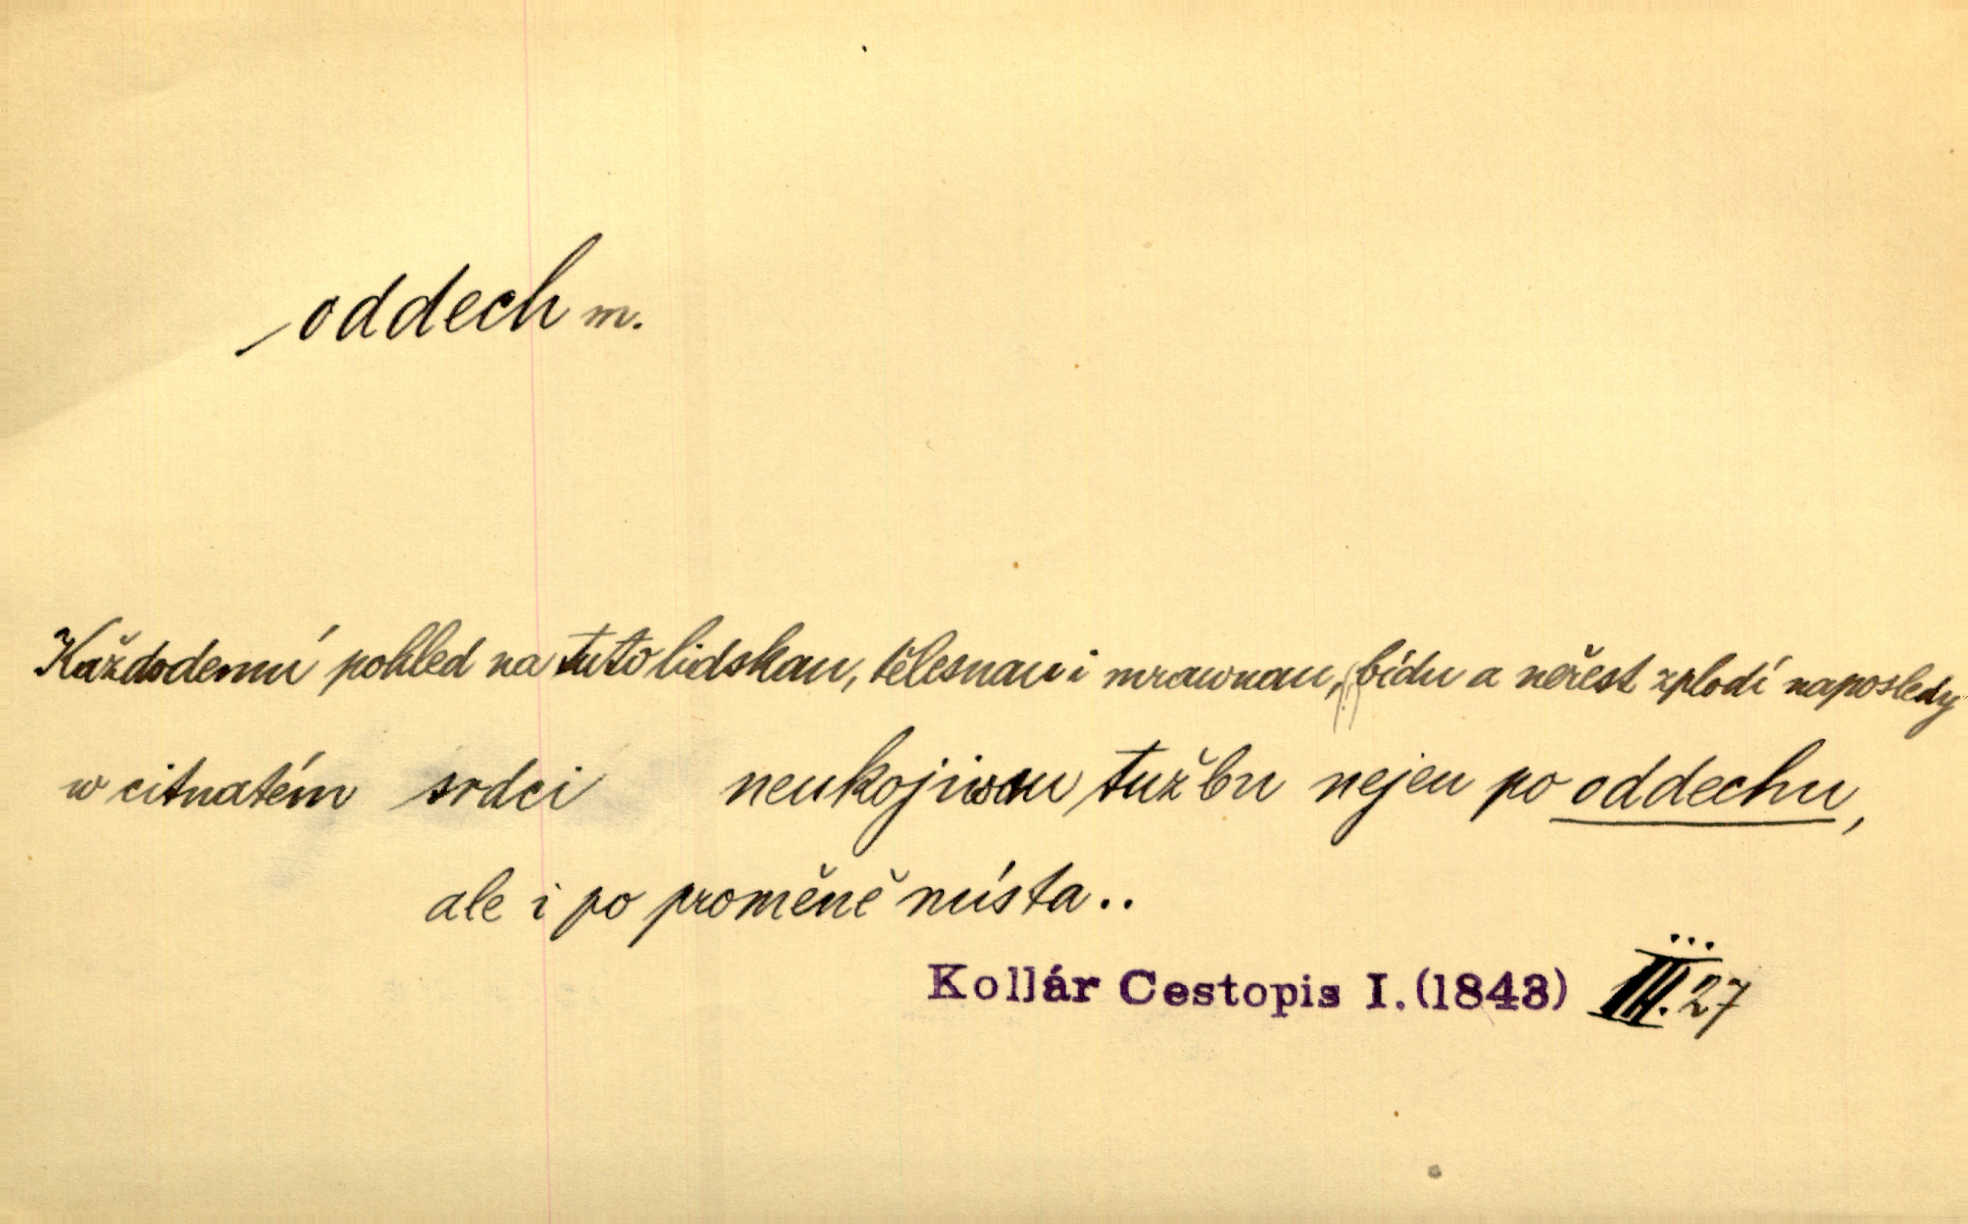 oddech m.
Každodenní pohled na tuto lidskau, tělesnau i mrawnau, bídu a neřest zplodí naposledy
w citnatém srdci neukojiwau tužbu nejen po oddechu,
ale i po proměně místa..
Kollár Cestopis I. (1843) III. 27